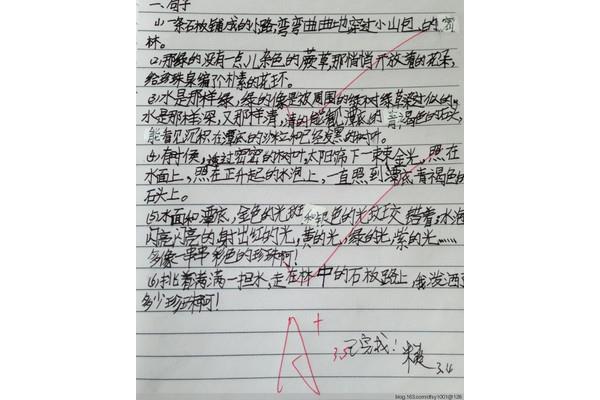 一、句子
(1)一条石板铺成的小路,弯弯曲曲地穿过小山包、的密
林。
(2)那绿的没有一点儿杂色的蕨草,那悄悄开放着的花朵,
给珍珠泉编了个朴素的花环。
(3)水是那样绿,绿的像是被周围的绿树绿草染过似的,
水是那样深,又那样清,清的能看见潭底的青褐色的石头,
能看见沉积在潭底的沙粒和已经发黑的树叶。
(4)有时候,透过密密的树叶,太阳筛下一束束金光,照在
水面上,照在正升起的水泡上,一直照到潭底青褐色的
石头上。
(5)水面和潭底,金色的光斑和银色的光斑交错着,水泡
闪亮闪亮的射出红的光,黄的光,绿的光,紫的光……
多像一串串彩色的珍珠啊!
(6)挑着满满一担水,走在林中的石板路上,我泼洒
多少珍珠啊!
A+
3.4
blog.163.com/dhsy1001@126